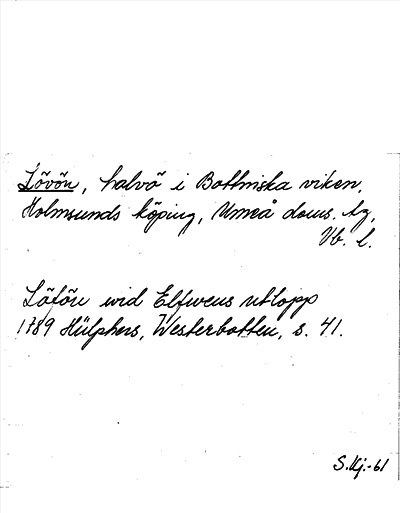 Lövön, halvö i Bottniska viken,
Holmsunds köping, Umeå doms. tg,
Vb. l.
Löfön wid Elfwens utlopp
1789 Hülphers, Westerbotten, s. 41.
S.Kj.-61